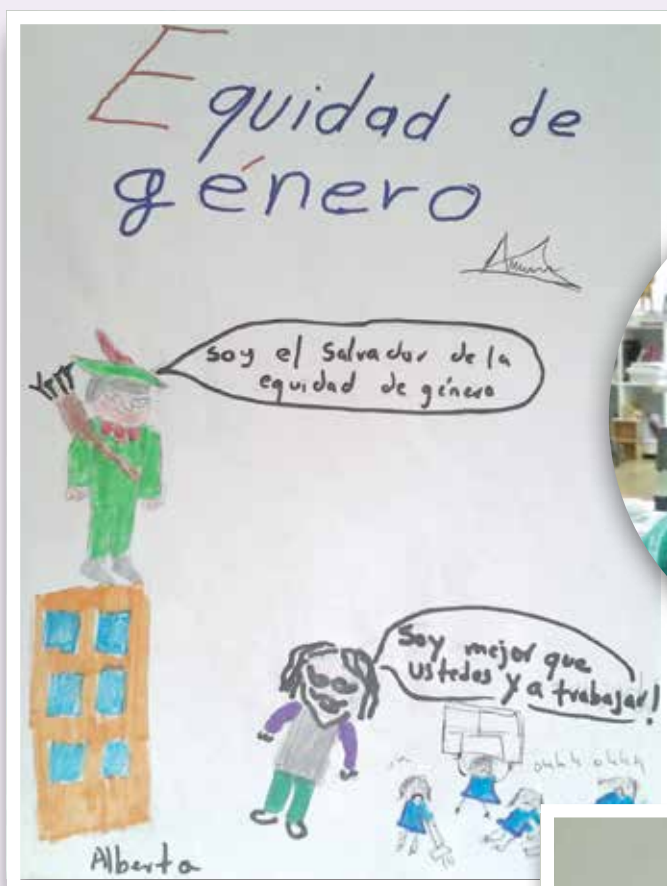 Equidad de
género
Soy el Salvador de la
equidad de género
Soy mejor que
ustedes y a trabajar!
ohhh ohhh
Alberta